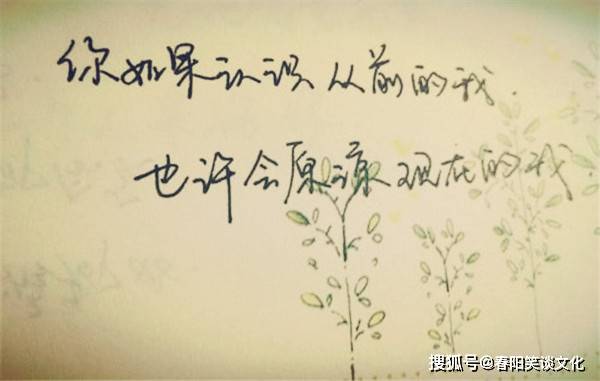 你如果认识从前的我.
也许会原谅现在的我.
搜狐号@春阳笑谈文化